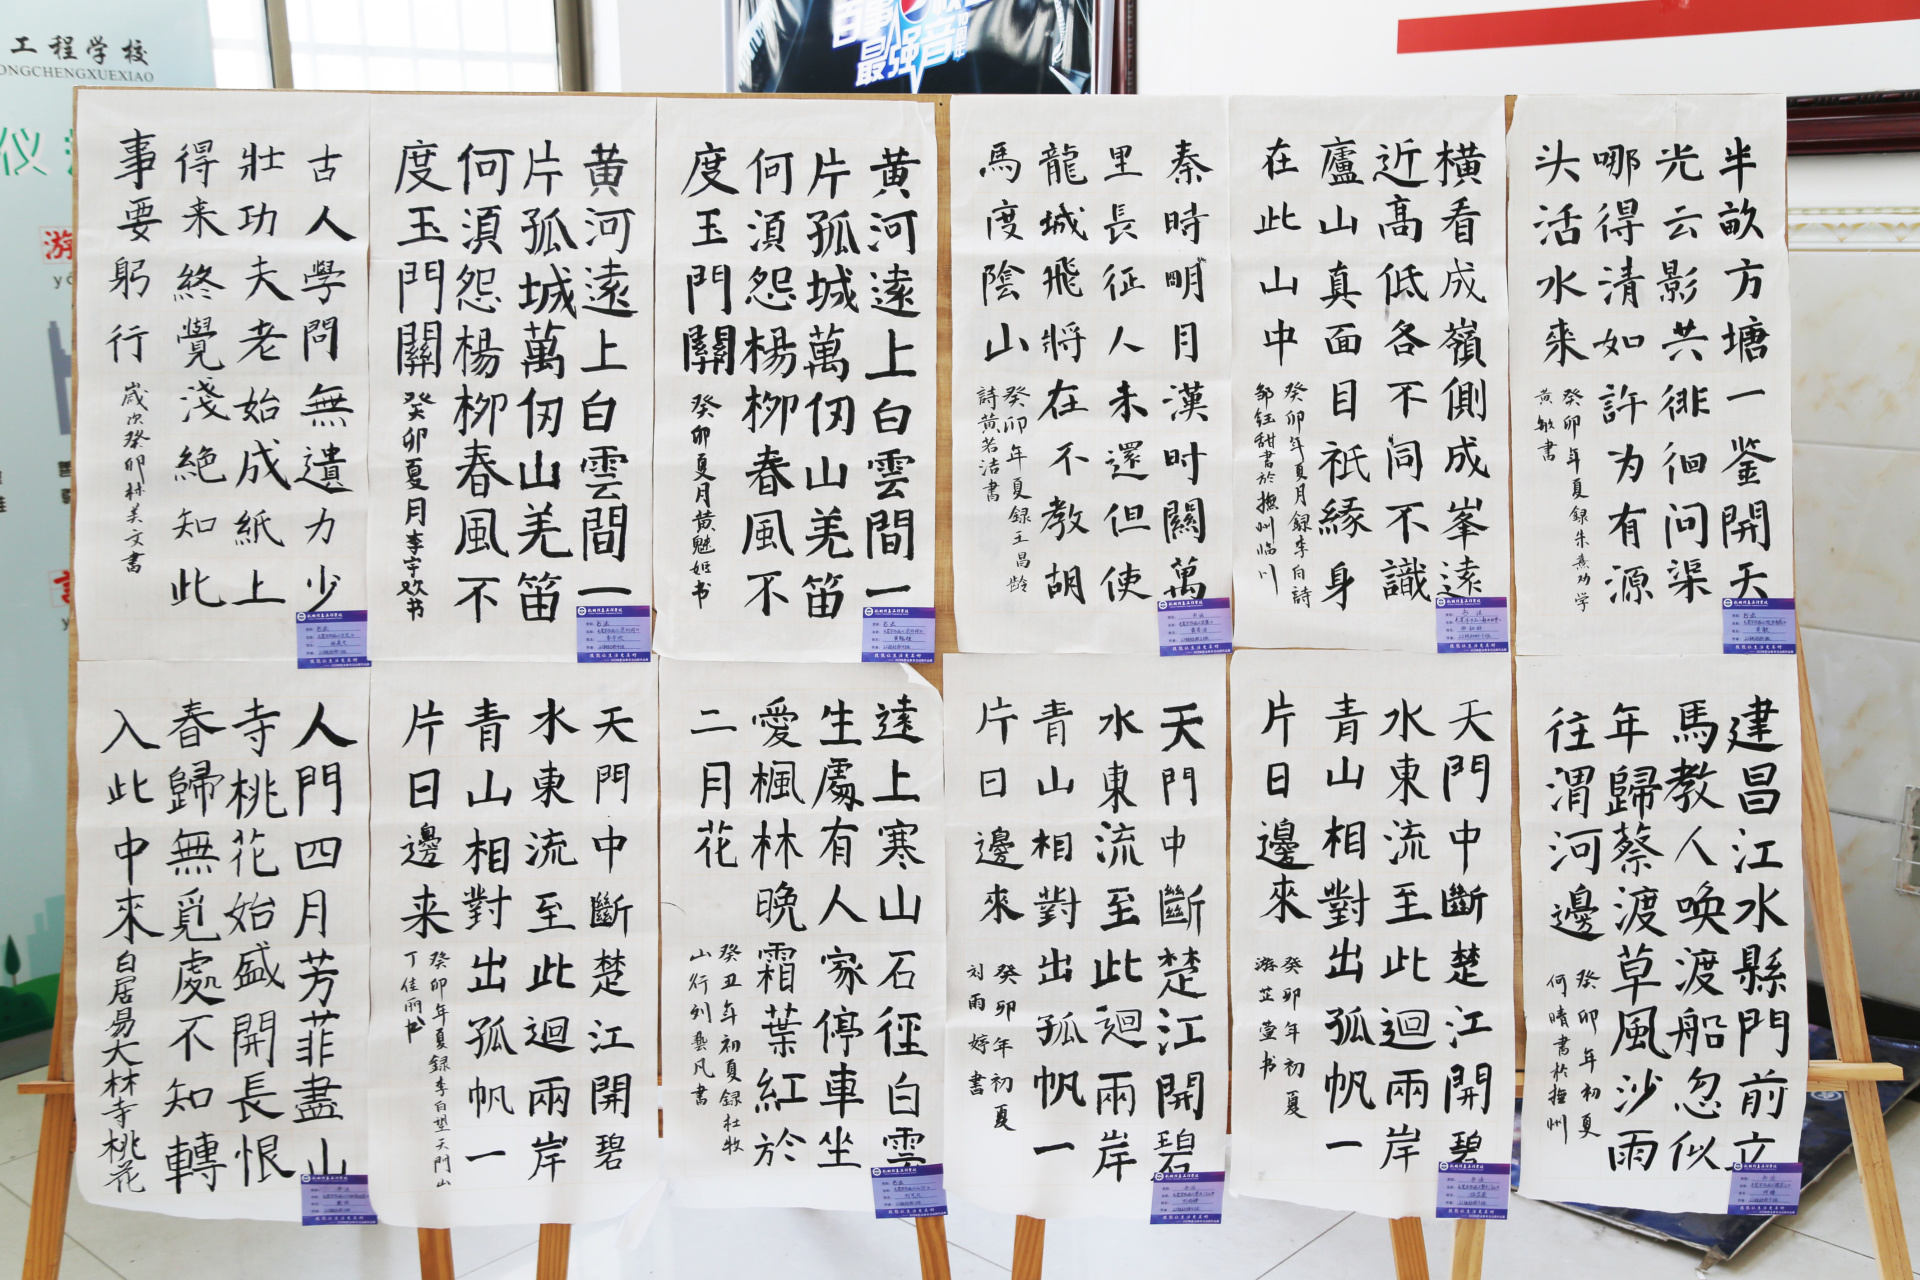 工程学校
ONGCHENGXUEXIAO
最强音
古人學問無遺力少
壯功夫老始成紙上
得来終覺淺絶知此
事要躬行
歲次癸卯林美文書
黄河遠上白雲間一
片孤城萬仞山羌笛
何須怨楊柳春風不
度玉門關
癸卯夏月李宇欢书
黄河遠上白雲間一
片孤城萬仞山羌笛
何須怨楊柳春風不
度玉門關
癸卯夏月黄魅姬书
秦時明月漢时關萬
里長征人未還但使
龍城飛將在不教胡
馬度陰山
癸卯年夏録王昌齡
詩黄若洁書
横看成嶺側成峯遠
近髙低各不同不識
廬山真面目祇緣身
在此山中
癸卯年夏月録李白詩
邹鈺甜書於撫州临川
半畝方塘一鉴開天
光云影共徘徊问渠
哪得清如許为有源
头活水来
癸卯年夏録朱熹劝学
黄敏書
人門四月芳菲盡山
寺桃花始盛開長恨
春歸無覓處不知轉
入此中來
白居易大林寺桃花
天門中斷楚江開碧
水東流至此迴兩岸
青山相對出孤帆一
片日邊来
癸卯年夏録李白望天門山
丁佳丽书
遠上寒山石徑白雲
生處有人家停車坐
愛楓林晚霜葉紅於
二月花
癸丑年初夏録杜牧
山行列藝凡書
天門中斷楚江開碧
水東流至此迴兩岸
青山相對出孤帆一
片日邊來
癸卯年初夏
刘雨婷書
天門中斷楚江開碧
水東流至此迴兩岸
青山相對出孤帆一
片日邊來
癸卯年初夏
游芷萱书
建昌江水縣門前立
馬教人唤渡船忽似
年歸蔡渡草風沙雨
往渭河邊
癸卯年初夏
何晴書於撫州